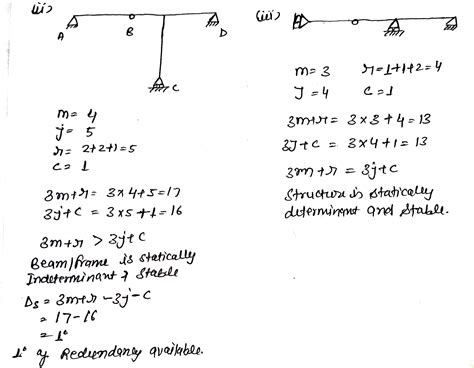 (iii)
A B D
C
m = 4
j = 5
r = 2+2+1 = 5
C = 1
3m+r = 3×4+5=17
3j+c = 3×5+1=16
3m+r > 3j+c
Beam/frame is statically
Indeterminant & stable
Ds = 3m+r-3j-c
= 17-16
= 1°
1° of Redundancy available.
(iii)
m = 3 r = 1+1+2 = 4
J = 4 C = 1
3m+r = 3×3+4=13
3J+c = 3×4+1=13
3m+r = 3j+c
Structure is statically
determinent and stable.